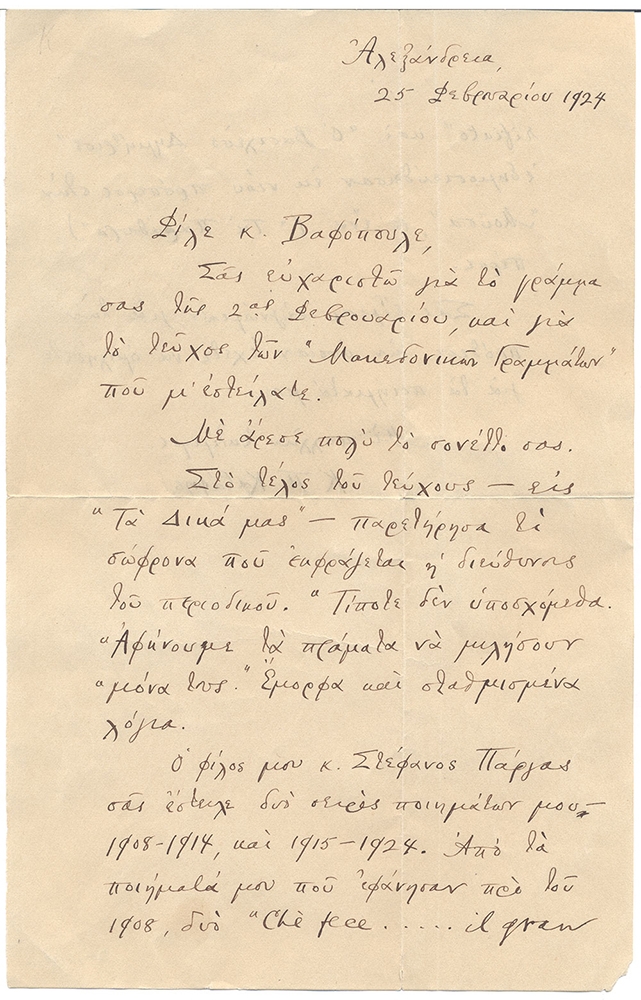 Ἀλεξάνδρεια,
25 Φεβρουαρίου 1924
Φίλε κ. Βαφόπουλε,
Σᾶς εὐχαριστῶ γιὰ τὸ γράμμα
σας τῆς 2ας Φεβρουαρίου, καὶ γιὰ
τὸ τεῦχος τῶν "Μακεδονικῶν Γραμμάτων"
ποῦ μ' ἐστείλατε.
Μὲ ἄρεσε πολὺ τὸ σονέττο σας.
Στὸ τέλος τοῦ τεύχους — εἰς
"Τὰ Δικά μας" — παρετήρησα τί
σώφρονα ποῦ ἐκφράζεται ἡ διεύθυνσις
τοῦ περιοδικοῦ. "Τίποτε δὲν ὑποσχόμεθα.
"Ἀφήνουμε τὰ πράματα νὰ μιλήσουν
"μόνα τους." Ἔμορφα καὶ σταθμισμένα
λόγια.
Ὁ φίλος μου κ. Στέφανος Πάργας
σᾶς ἔστειλε δυὸ σειρὲς ποιημάτων μου —
1908-1914, καὶ 1915-1924. Ἀπὸ τὰ
ποιήματά μου ποῦ ἐφάνησαν πρὸ τοῦ
1908, δυὸ "Che fece ..... il gran